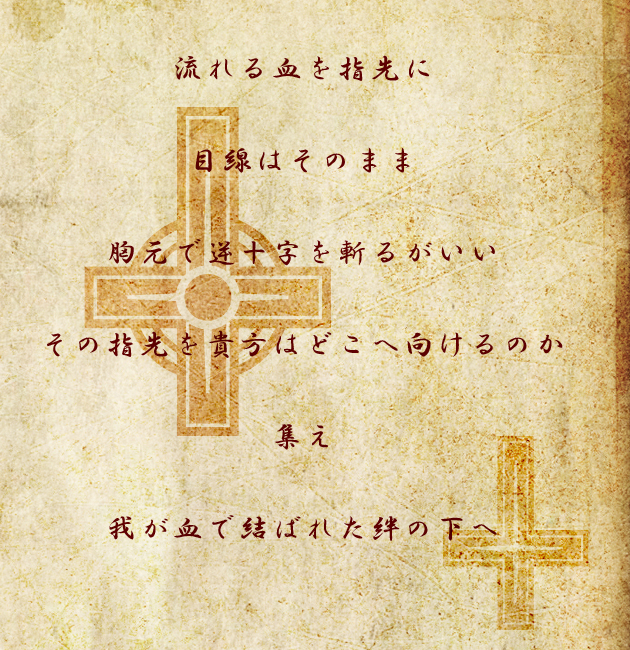 流れる血を指先に
目線はそのまま
胸元で逆十字を斬るがいい
その指先を貴方はどこへ向けるのか
集え
我が血で結ばれた絆の下へ